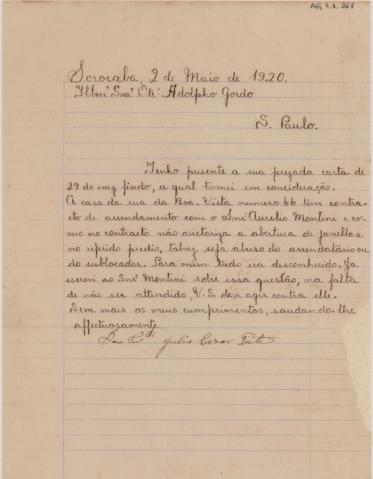 AG 4.1.368
Sorocaba, 2 de Maio de 1920.
Illmº Snrº Dr: Adolpho Gordo
S. Paulo.
Tenho presente a sua prezada carta de
29 do mez findo, a qual tomei em consideração.
A casa da rua da Boa-Vista numero 66 tem contra-
cto de arrendamento com o Snr. Aurelio Montini e co-
mo no contracto não auctoriza a abertura de janellas
no referido predio, talvez seja abuso do arrendatario ou
do sublocador. Para mim tudo era desconhecido. Ja
escrevi ao Snrº Montini sobre essa questão, na falta
de não ser attendido, V. S. deve agir contra elle.
Sem mais os meus cumprimentos, saudando-lhe
affectuosamente
Julio Cesar